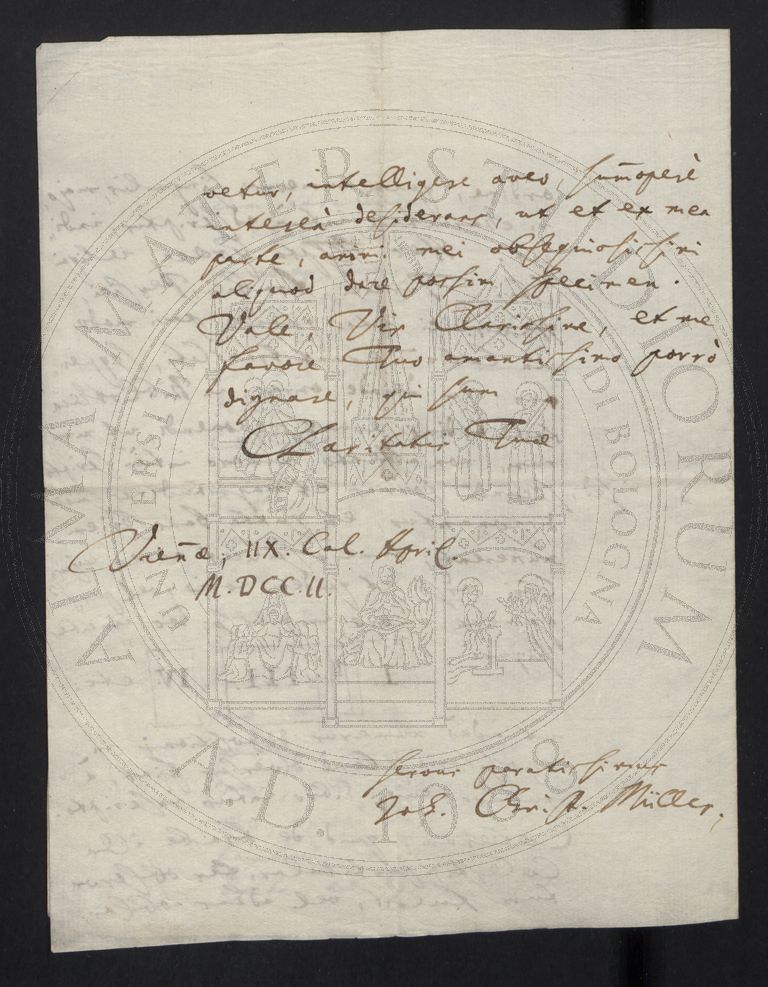 vetur, intelligere aveo summoperè
intereà desiderans, ut et ex mea
parte, animi mei obsequiosissimi
aliquod dare possim specimen.
Vale, Vir Clarissime, et me
favore Tuo amantissimo porrò
dignare, qui sum
Claritatis Tuæ
Vieñæ, IIX. Cal. April.
M.DCC.II.
servus paratissimus
Joh. Christ. Müller.
ALMA MATER STUDIORUM
UNIVERSITÀ DI BOLOGNA
A.D. 1088